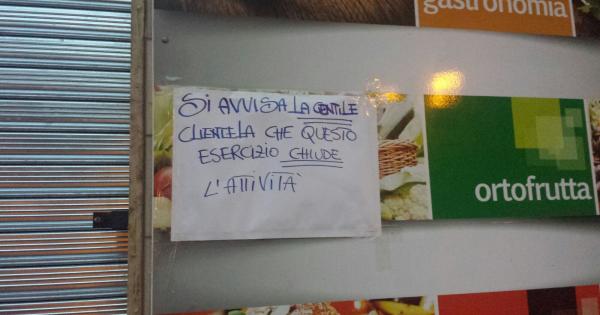 gastronomia
SI AVVISA LA GENTILE
CLIENTELA CHE QUESTO
ESERCIZIO CHIUDE
L'ATTIVITÀ
ortofrutta